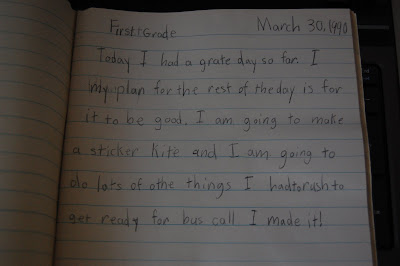 First Grade March 30, 1990
Today I had a grate day so far. I
my plan for the rest of the day is for
it to be good. I am going to make
a sticker kite and I am going to
do lots of othe things I had to rush to
get ready for bus call I made it!